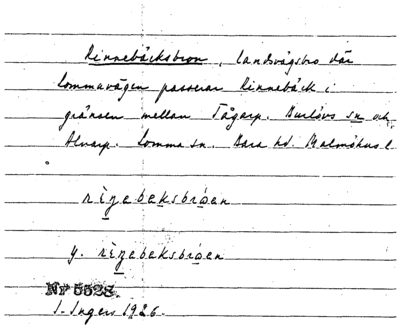 Rinnebäcksbron, landsvägsbro där
Lommavägen passerar Rinnebäck i
gränsen mellan Tågarp. Burlövs sn och
Alnarp. Lomma sn. Bara hd. Malmöhus l
rizebeksbroen
y. rizebeksbroen
No 5528.
I. Ingers 1926.